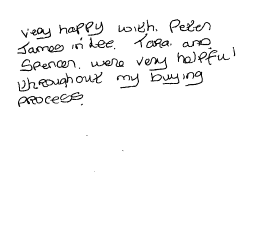 very happy with. Peter
James in Lee. Tara. and
Spencer. were very helpful
throughout my buying
process.